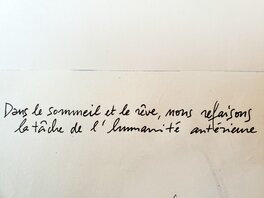 Dans le sommeil et le rêve, nous refaisons
la tâche de l'humanité antérieure